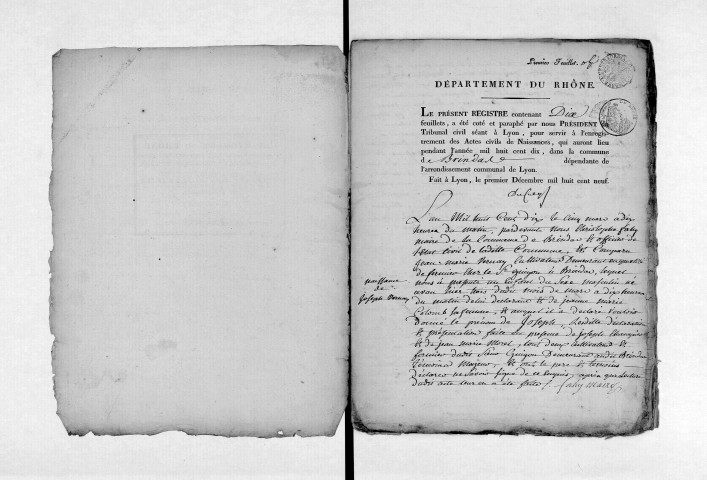 Premier Feuillet.
DÉPARTEMENT DU RHÔNE.
LE PRÉSENT REGISTRE contenant Dix
feuillets, a été coté et paraphé par nous PRÉSIDENT du
Tribunal civil séant à Lyon, pour servir à l'enregis-
trement des Actes civils de Naissances, qui auront lieu
pendant l'année mil huit cent dix, dans la commune
de Brindas dépendante de
l'arrondissement communal de Lyon.
Fait à Lyon, le premier Décembre mil huit cent neuf.
L'an Mil huit Cent dix le cinq mars a dix
heures du matin, pardevant Nous Christophe faby
maire de la Commune de Brindas & officier de
l'état Civil de ladite Commune, Est Comparu
Jean Marie Vernay Cultivateur Demeurant
de fermier a Brindas, lequel
naissance
de
Joseph Vernay
nous à présenté un Enfant du Sexe masculin né
avant hier trois dudit mois de mars a dix heures
du matin de lui declarant & de jeanne marie
Colomb sa femme, & auquel il a déclaré vouloir
Donné le prénom de Joseph, Lesdittes déclaration
& présentation faite en présence de Joseph
& de jean marie Morel, tous deux cultivateurs &
fermier Demeurant audit Brindas
témoins Majeurs, & ont le pere & témoins
Déclarés ne Savoir signer de ce Enquis, après que lecture
dudit acte leur en a été faite. faby maire